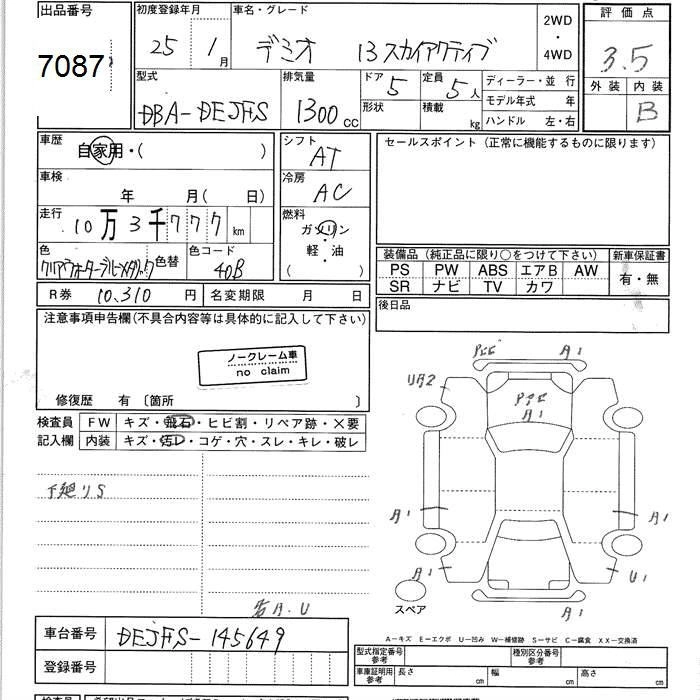 出品番号
7087
初度登録年月
25 1月
車名・グレード
デミオ 13スカイアクティブ
2WD
・
4WD
評価点
3.5
外装 内装
B
型式
DBA-DEJFS
排気量
1300cc
ドア 5
形状
定員 5人
積載 kg
ディーラー・並行
モデル年式 年
ハンドル 左・右
車歴
自家用・( )
車検
年 月( 日)
走行
10万3千777km
色
クリアウォーターブルーメタリック
色替
色コード
40B
R券 10,310円
名変期限 月 日
シフト
AT
冷房
AC
燃料
ガソリン
軽・油
( )
セールスポイント(正常に機能するものに限ります)
装備品(純正品に限り○をつけて下さい)
PS PW ABS エアB AW
SR ナビ TV カワ
新車保証書
有・無
後日品
注意事項申告欄(不具合内容等は具体的に記入して下さい)
ノークレーム車
no claim
修復歴 有 〔箇所 〕
検査員
記入欄
FW キズ・飛石・ヒビ割・リペア跡・×要
内装 キズ・汚レ・コゲ・穴・スレ・キレ・破レ
下廻りS
A1
A1
A1
A1
A1
U1
A1
スペア
A.U
A1
車台番号 DEJFS-145649
登録番号
A-キズ E-エクボ U-凹み W-補修跡 S-サビ C-腐食 XX-交換済
型式指定番号
参考
種別区分番号
参考
車庫証明用
参考
長さ cm
幅 cm
高さ cm